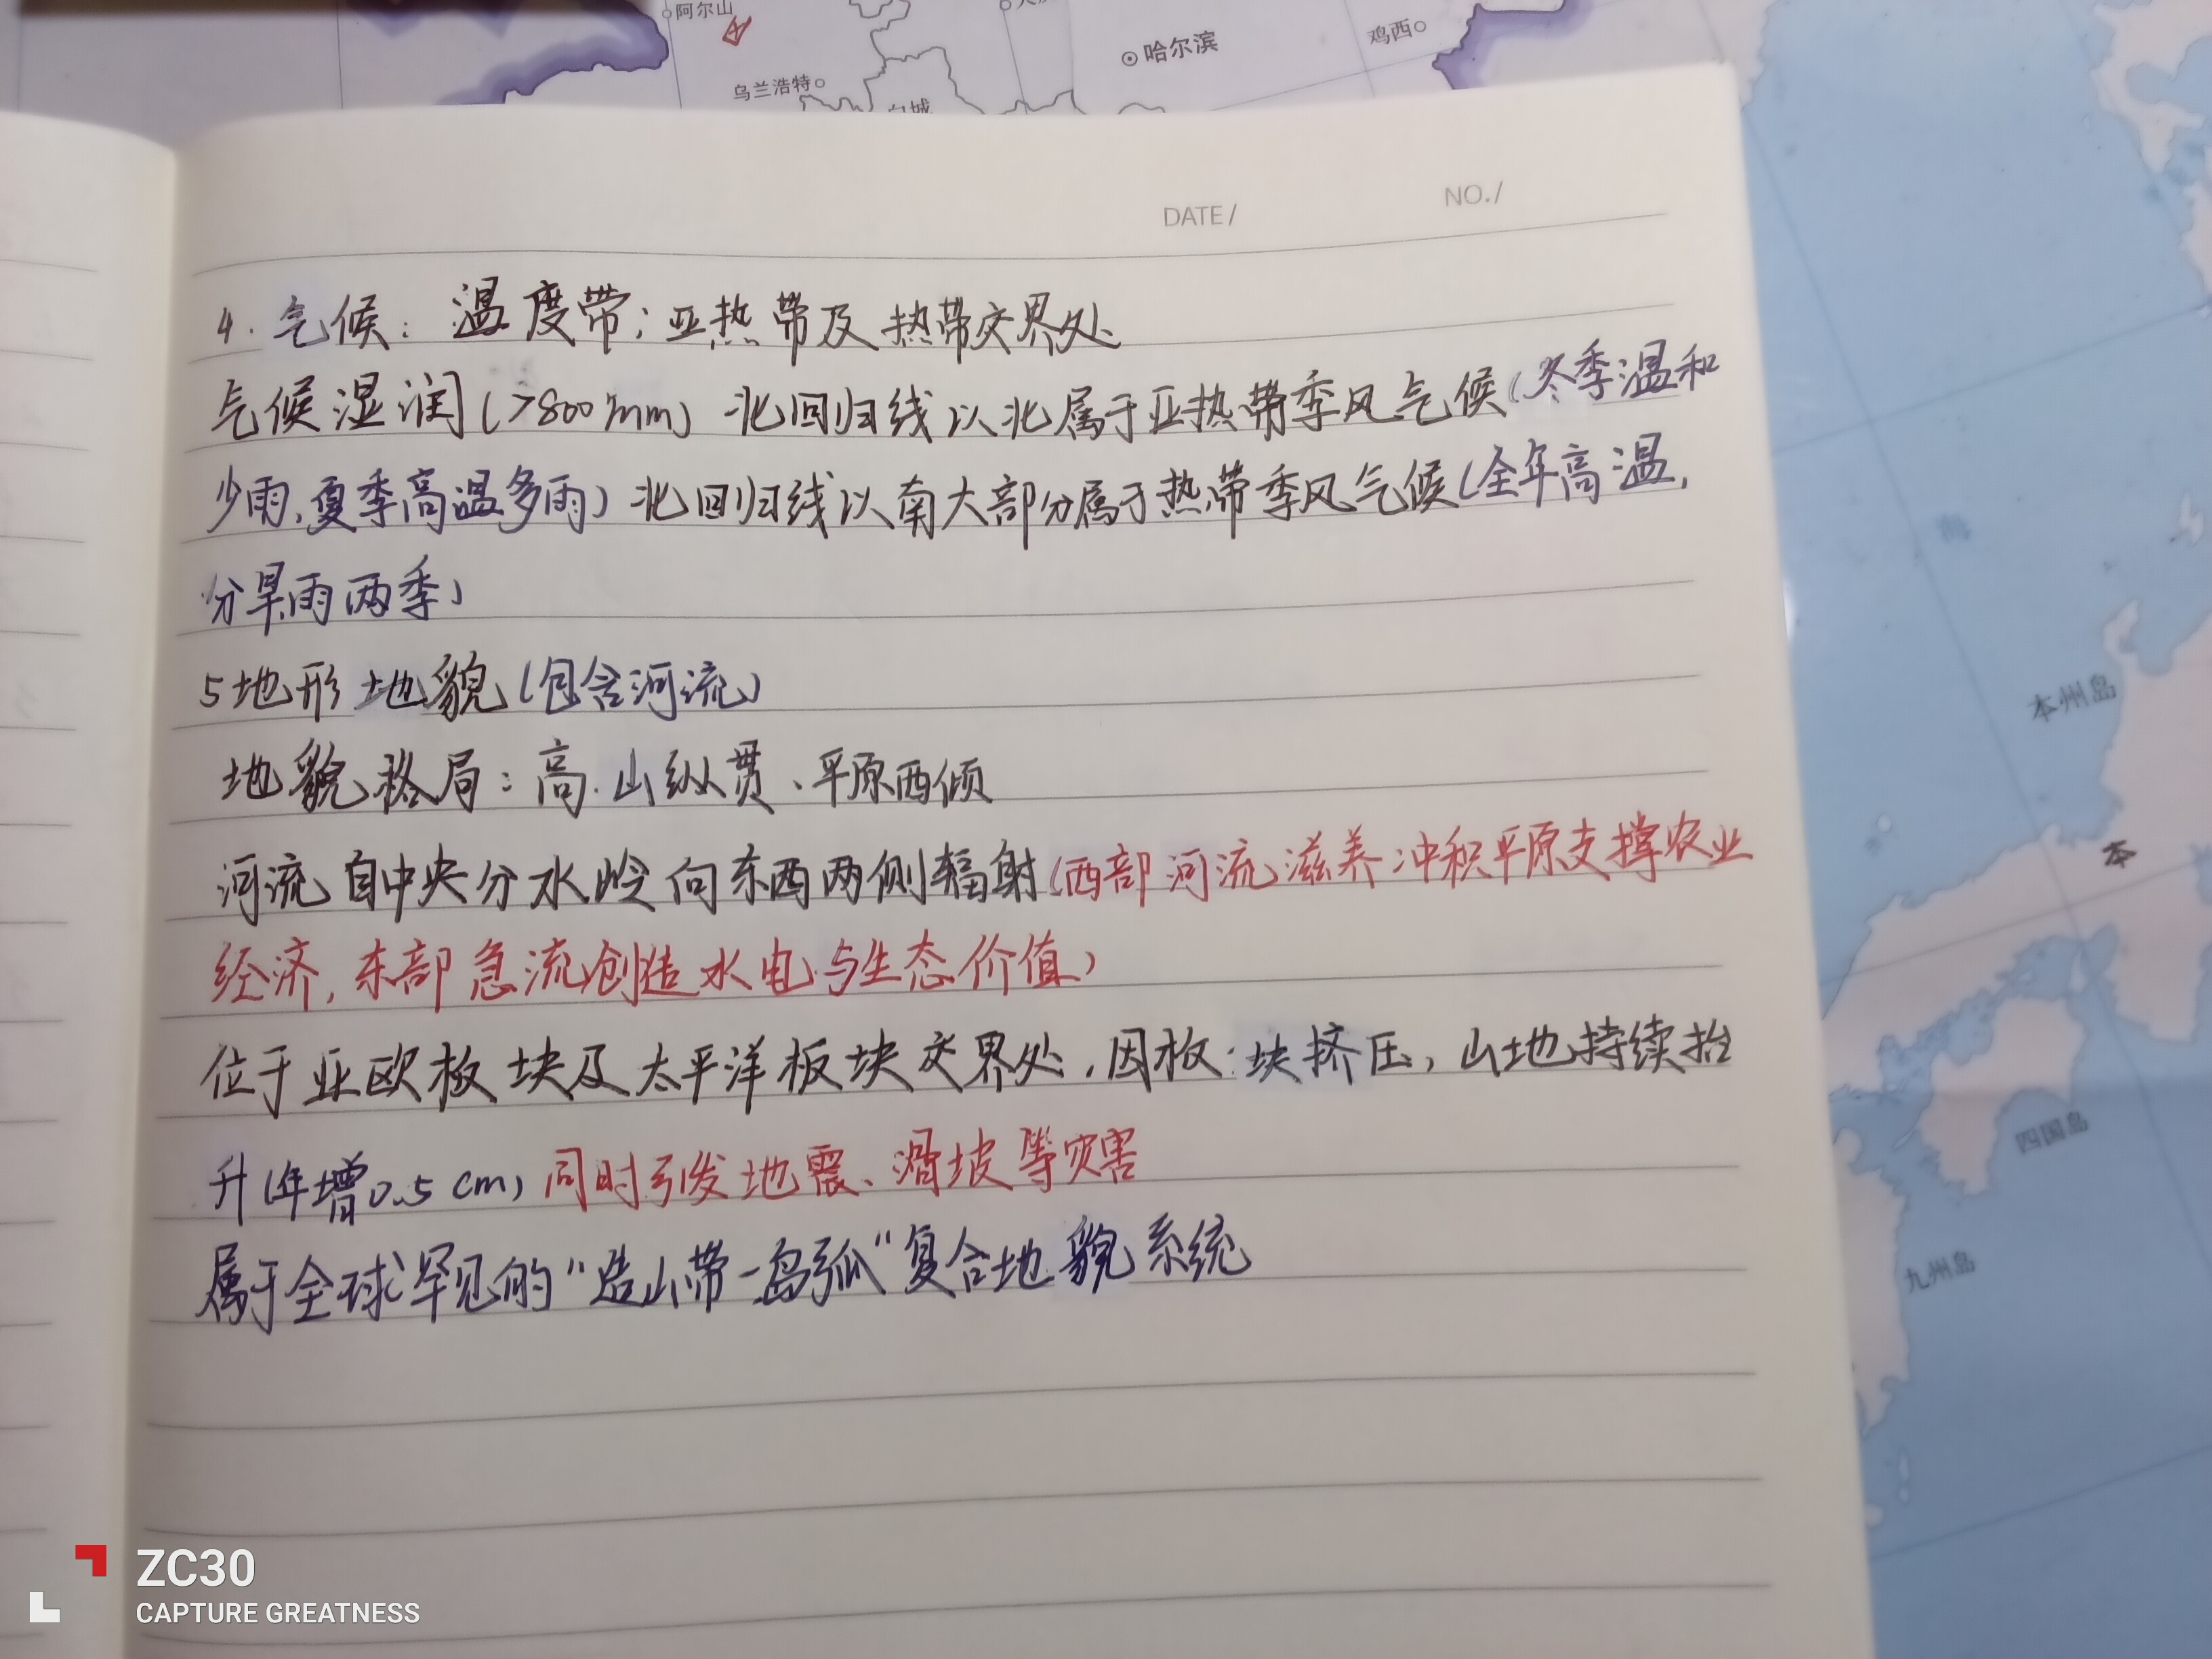 阿尔山
哈尔滨
鸡西
乌兰浩特
白城
DATE/
NO./
4.气候：温度带：亚热带及热带交界处
气候湿润(>800mm) 北回归线以北属于亚热带季风气候(冬季温和
少雨,夏季高温多雨) 北回归线以南大部分属于热带季风气候(全年高温,
分旱雨两季)
5地形地貌(包含河流)
地貌格局：高山纵贯、平原西倾
河流自中央分水岭向东西两侧辐射(西部河流滋养冲积平原支撑农业
经济,东部急流创造水电与生态价值)
位于亚欧板块及太平洋板块交界处,因板块挤压,山地持续抬
升(年增0.5cm) 同时引发地震、滑坡等灾害
属于全球罕见的"造山带-岛弧"复合地貌系统
海
本州岛
本
四国岛
九州岛
ZC30
CAPTURE GREATNESS